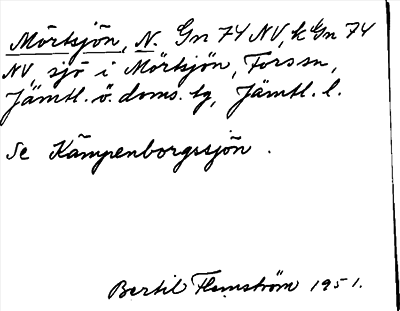 Mörtsjön, N. Gn 74 NV, k Gn 74
NV sjö i Mörtsjön, Fors sn,
Jämtl. ö. doms. tg, Jämtl. l.
Se Kämpenborgssjön.
Bertil Flemström 1951.